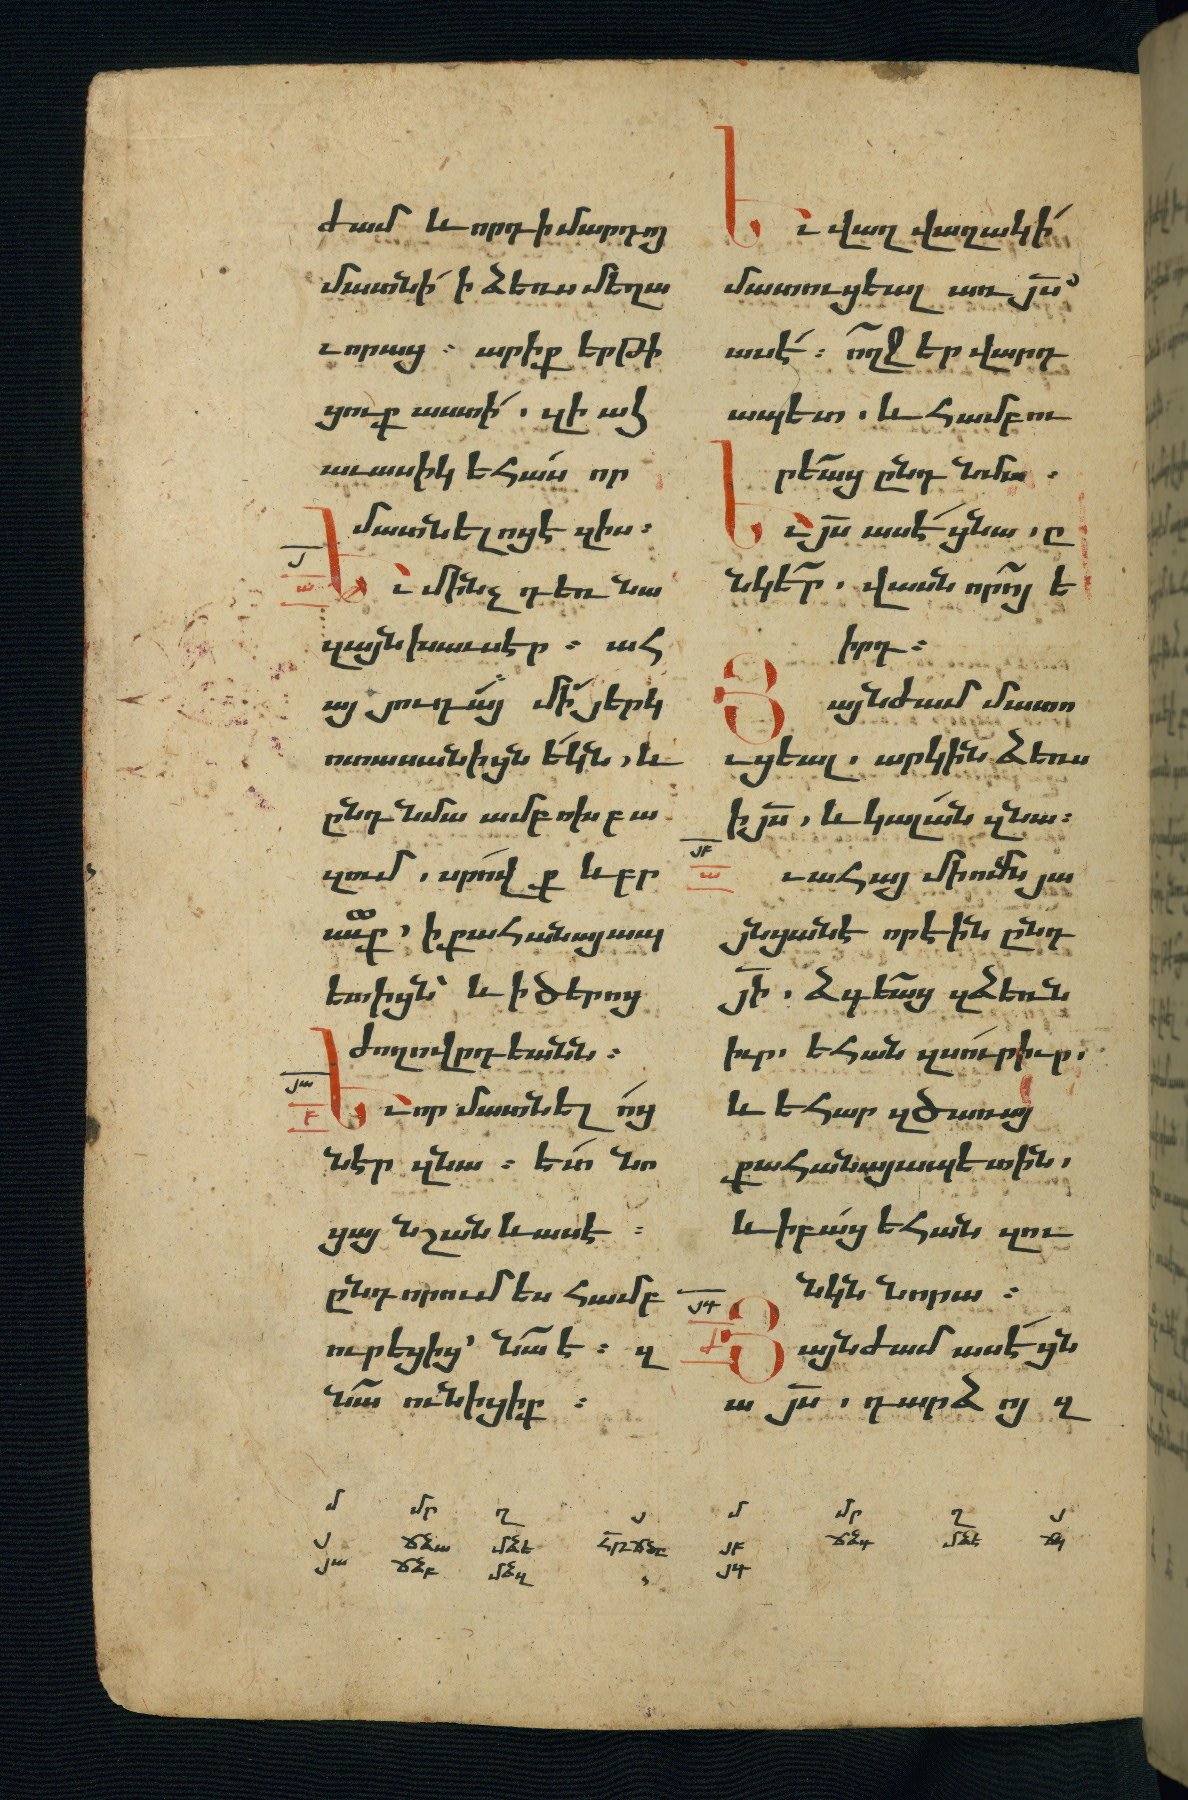 ժամ և որդի մարդոյ
մատնի՛ ի ձեռս մեղա
ւորաց։ արիք երթի
ցուք աստի՛, զի ահ
աւասիկ եհաս որ
մատնելոցէ զիս։
Եւ մինչ դեռ նա
զայն խաւսէր։ ահ
այ յուդա՛յ մի՛ յերկ
ոտասանիցն եկն, և
ընդ նմա ամբոխ բա
զում, սրով ք և բր
աւք, ի քահանայապ
ետիցն՝ և ի ծերոց
ժողովըրդեանն։
Եւ որ մատնել ո՛ց
նէր զնա։ ետ նո
ցայ նշան և ասէ։
ընդ որում ես համբ
ուրեցից՝ նա̃ է։ զ
նա̃ ունիցիք։
Եւ վաղ վաղակի՛
մատուցեալ առ յ̅ս՝
ասէ՛։ ո՛ղջ եր վարդ
ապետ, և համբու
րեաց ընդ նմա։
Եւ յ̅ս ասէ՛ ցնա, ը
նկե՛ր, վասն որո՛յ ե
իրդ։
Յայնժամ մատո
ւցեալ, արկին ձեռս
ի յ̅ս, և կալա՛ն զնա։
ւահայ միումն յա
յնցանէ որ էին ընդ
յ̅ի, ձգեաց զձեռն
իւր, եհան զսուր իւր,
և եհար զծառայ
քահանայապետին,
և ի բաց եհան զու
նկն նորա։
Յայնժամ ասէ՛ ցն
ա յ̅ս, դարձ ոյ զ